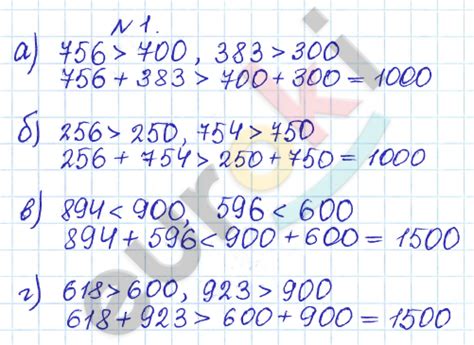 N 1.
а) 756 > 700, 383 > 300
756 + 383 > 700 + 300 = 1000
б) 256 > 250, 754 > 750
256 + 754 > 250 + 750 = 1000
в) 894 < 900, 596 < 600
894 + 596 < 900 + 600 = 1500
г) 618 > 600, 923 > 900
618 + 923 > 600 + 900 = 1500
euroki